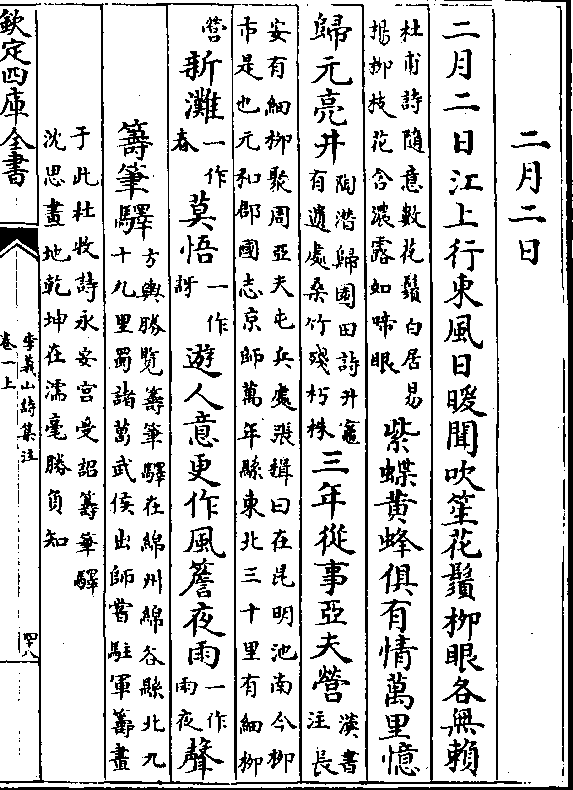 二月二日
二月二日江上行東風日暖聞吹笙花鬚柳眼各無賴
杜甫詩隨意數花鬚白居易
楊柳枝花含濃露如啼眼
紫蝶黄蜂俱有情萬里憶
歸元亮井
陶潛歸園田詩井竈
有遺處桑竹殘朽株
三年從事亞夫營
漢書
注長
安有細柳聚周亞夫屯兵處張揖曰在昆明池南今柳
市是也元和郡國志京師萬年縣東北三十里有細柳
營
新灘
一作
春
莫悟
一作
訝
遊人意更作風簷夜雨
一作
雨夜
聲
籌筆驛
方輿勝覽籌筆驛在綿州綿谷縣北九
十九里蜀諸葛武侯出師嘗駐軍籌畫
于此杜牧詩永安宫受詔籌筆驛
沈思畫地乾坤在濡毫勝負知
欽定四庫全書
李義山詩集注
卷一上
四八